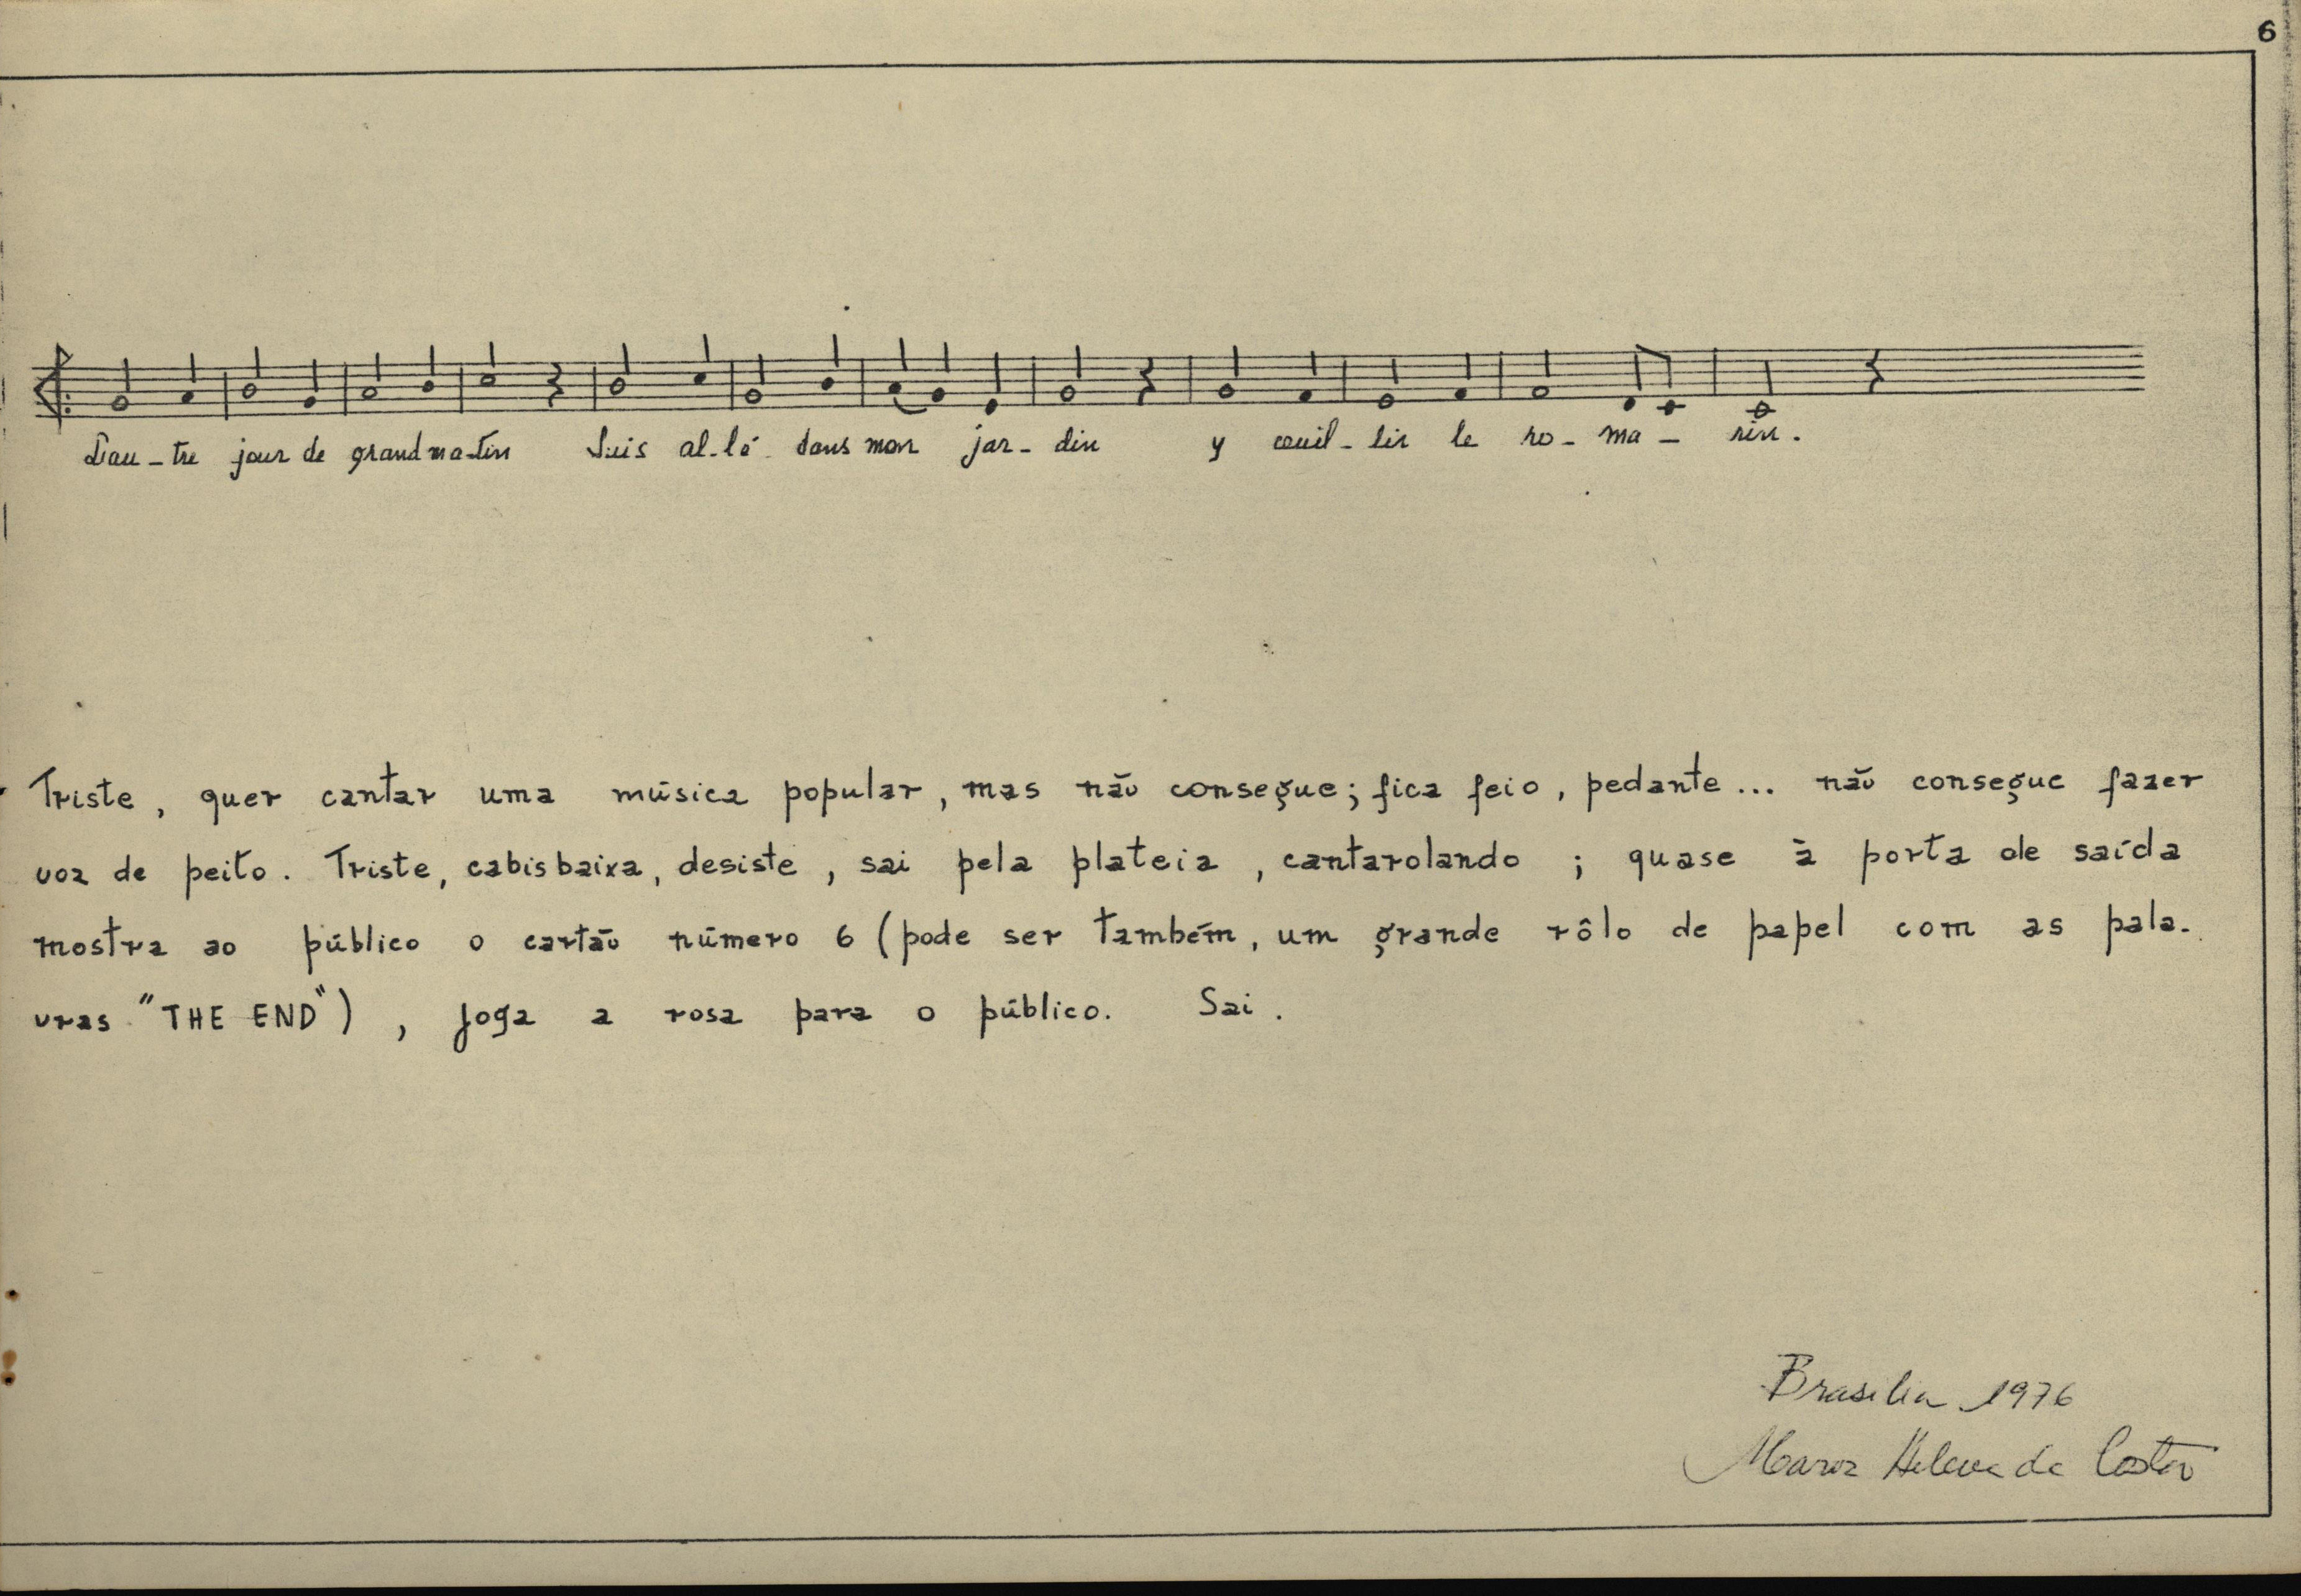 6
L'au - tre jour de grand ma - tin Suis al - lé dans mon jar - din y cueil - lir le ro - ma - rin.
Triste, quer cantar uma música popular, mas não consegue; fica feio, pedante... não consegue fazer
voz de peito. Triste, cabisbaixa, desiste, sai pela plateia, cantarolando; quase à porta de saída
mostra ao público o cartão número 6 (pode ser também, um grande rôlo de papel com as pala-
vras "THE END"), joga a rosa para o público. Sai.
Brasilia 1976
Maria Helena da Costa